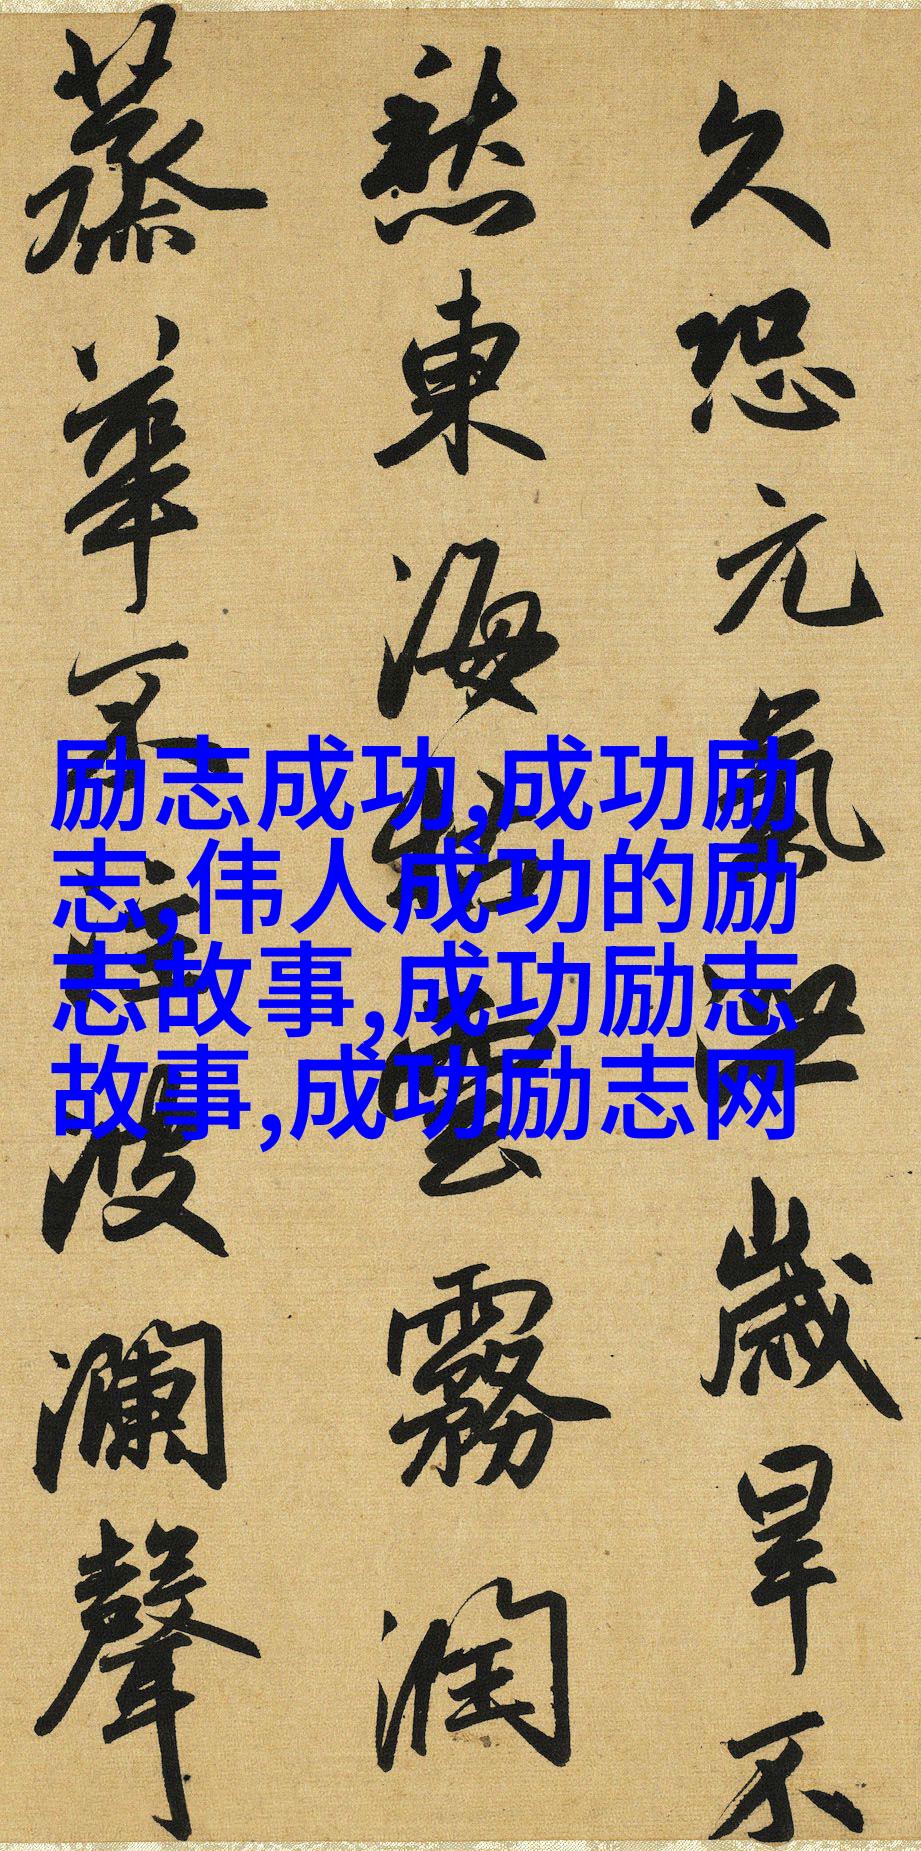 久恐元氣泄歲旱不
愁東海枯雲霧潤
蒸華不注波瀾聲
励志成功,成功励
志,伟人成功的励
志故事,成功励志
故事,成功励志网